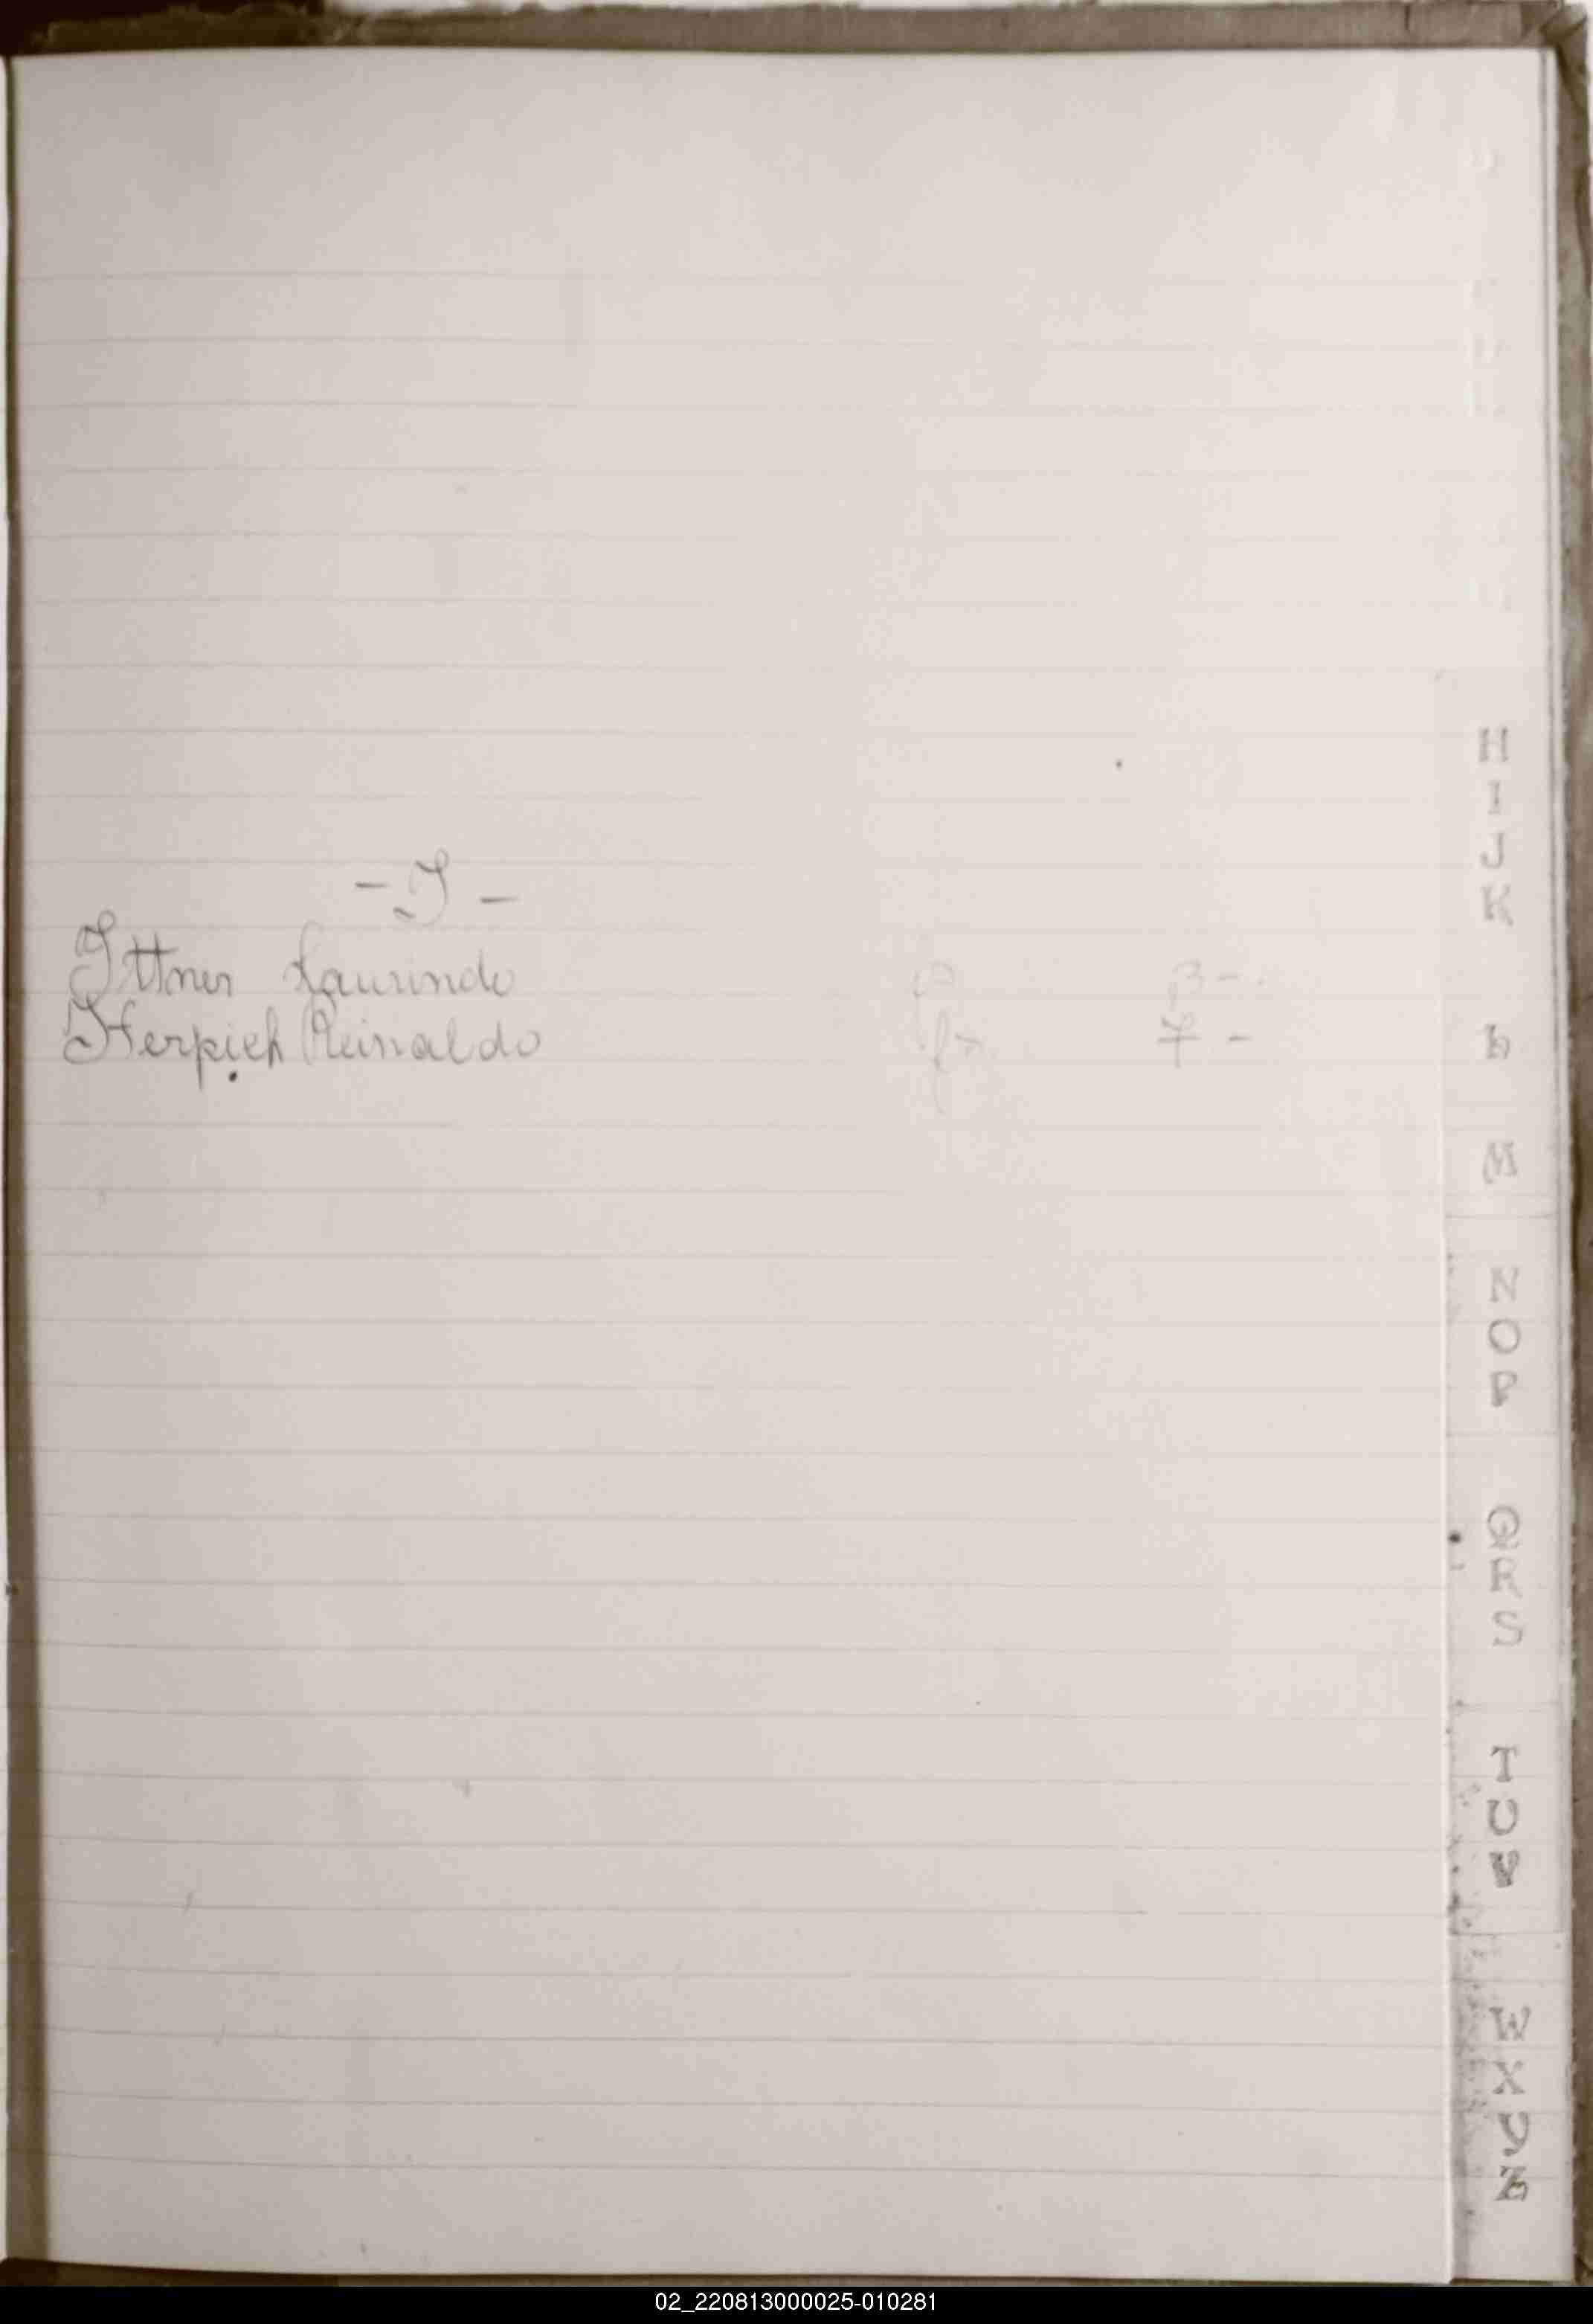 - I -
Ittner Laurindo 3 -
Herpich Reinaldo 7 -
H
I
J
K
L
M
N
O
P
Q
R
S
T
U
V
W
X
Y
Z
02_220813000025-010281